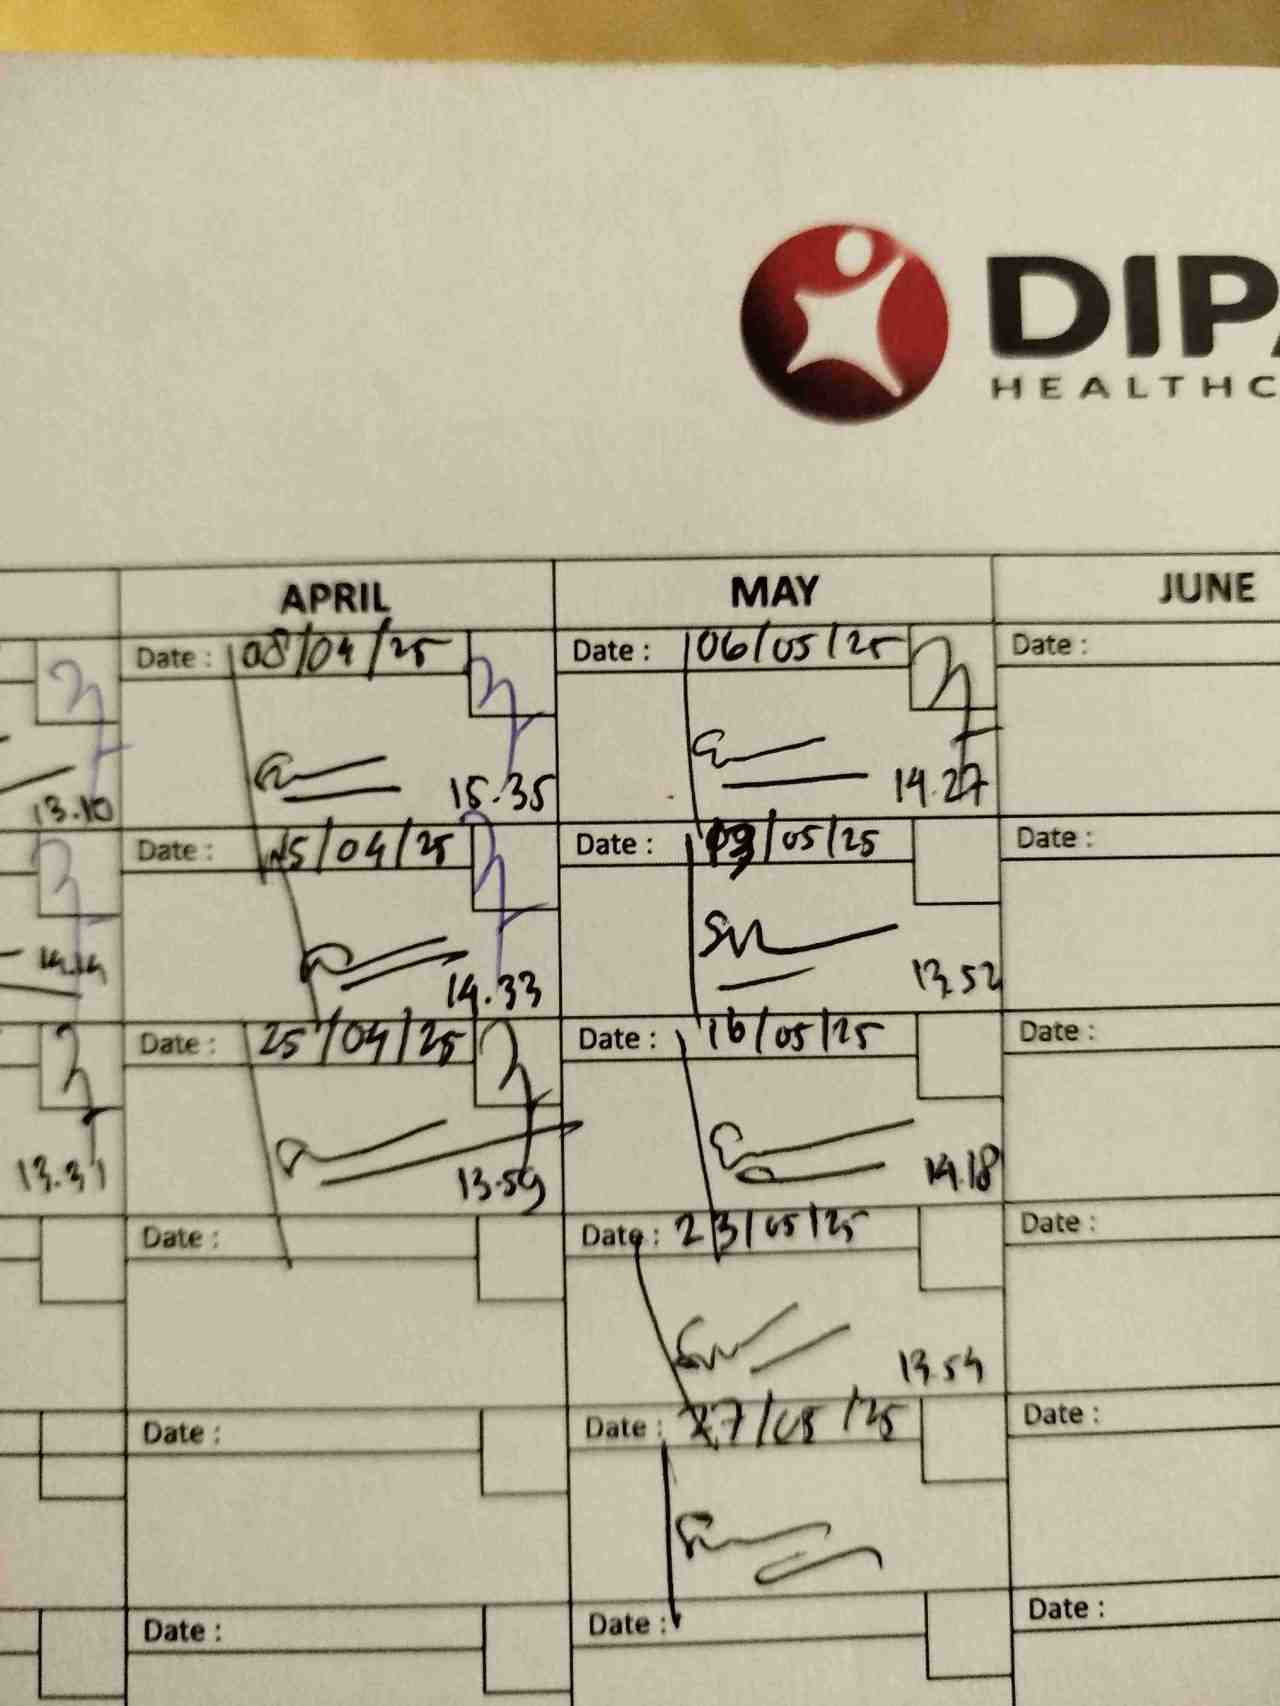 DIP
HEALTHC
APRIL MAY JUNE
Date : 08/04/25 Date : 06/05/25 Date :
13.10 15.35 14.27
Date : 15/04/25 Date : 09/05/25 Date :
14.14 14.33 13.52
Date : 25/04/25 Date : 16/05/25 Date :
13.31 13.59 14.18
Date : Date : 23/05/25 Date :
13.54
Date : Date : 27/05/25 Date :
Date : Date : Date :